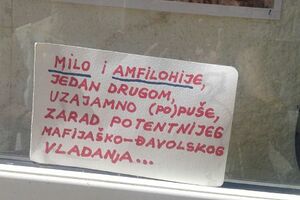 MILO i AMFILOHIJE,
JEDAN DRUGOM,
UZAJAMNO (PO)PUŠE,
ZARAD POTENTNIJEG
MAFIJAŠKO-ĐAVOLSKOG
VLADANJA...